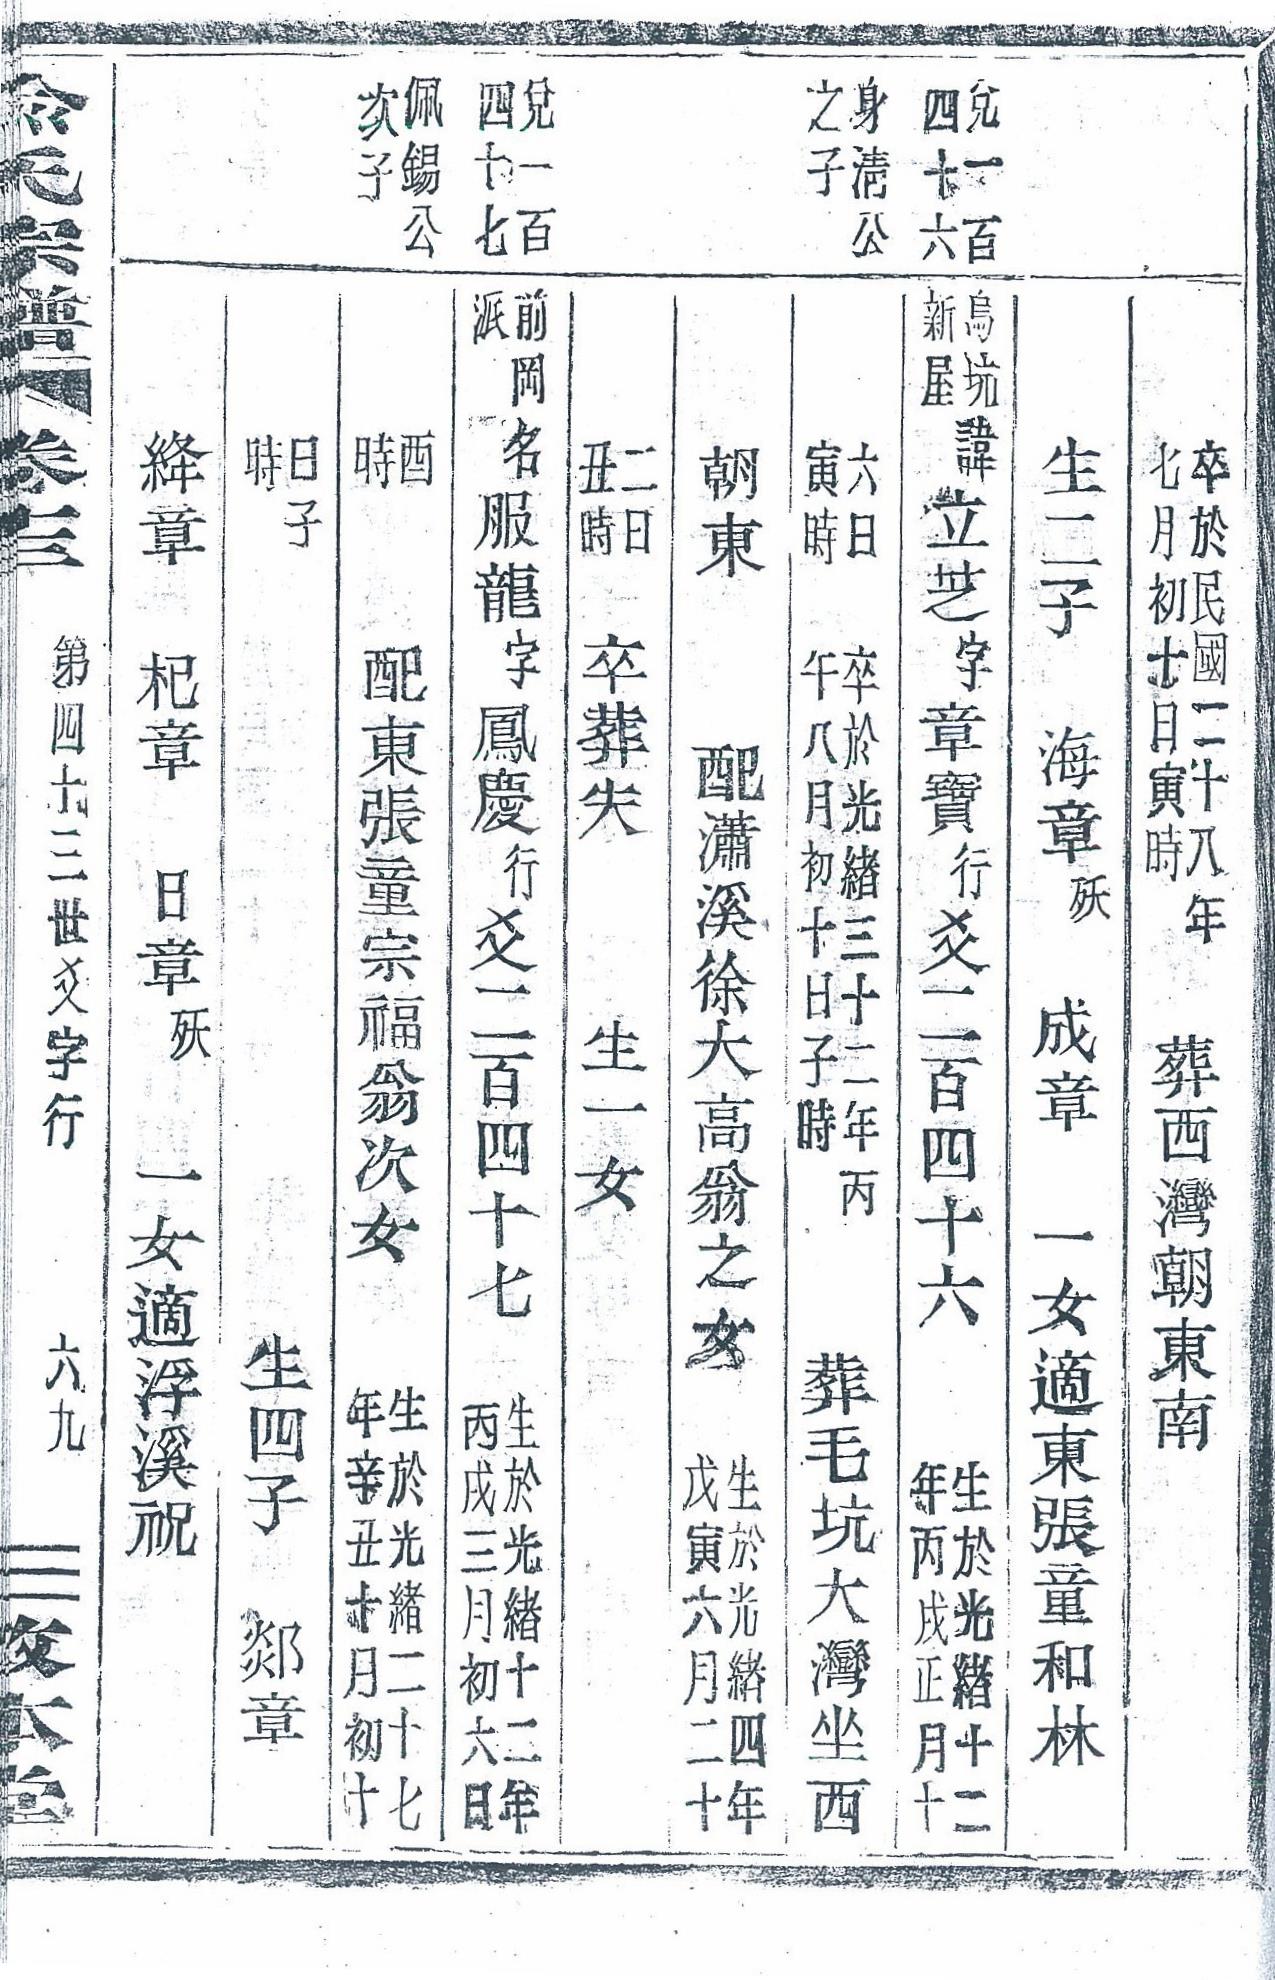 卒於民國二十八年
七月初七日寅時
葬西灣朝東南
生二子 海章 殀 成章 一女適東張童和林
兌一百
四十六
烏坑
新屋
諱立芝字章寶行爻二百四十六
生於光緒十二
年丙戌正月十
身清公
之子
六日
寅時
卒於光緒三十二年丙
午八月初十日子時
葬毛坑大灣坐西
朝東 配瀟溪徐大高翁之女
生於光緒四年
戊寅六月二十
二日
丑時
卒葬失 生一女
兌一百
四十七
前岡
派
名服龍字鳳慶行爻二百四十七
生於光緒十二年
丙戌三月初六日
佩錫公
次子
酉
時
配東張童宗福翁次女
生於光緒二十七
年辛丑十月初十
日子
時
生四子 郯章
絳章 杞章 日章 殀 一女適浮溪祝
氏宗譜 卷三
第四十三世爻字行 六九
本堂